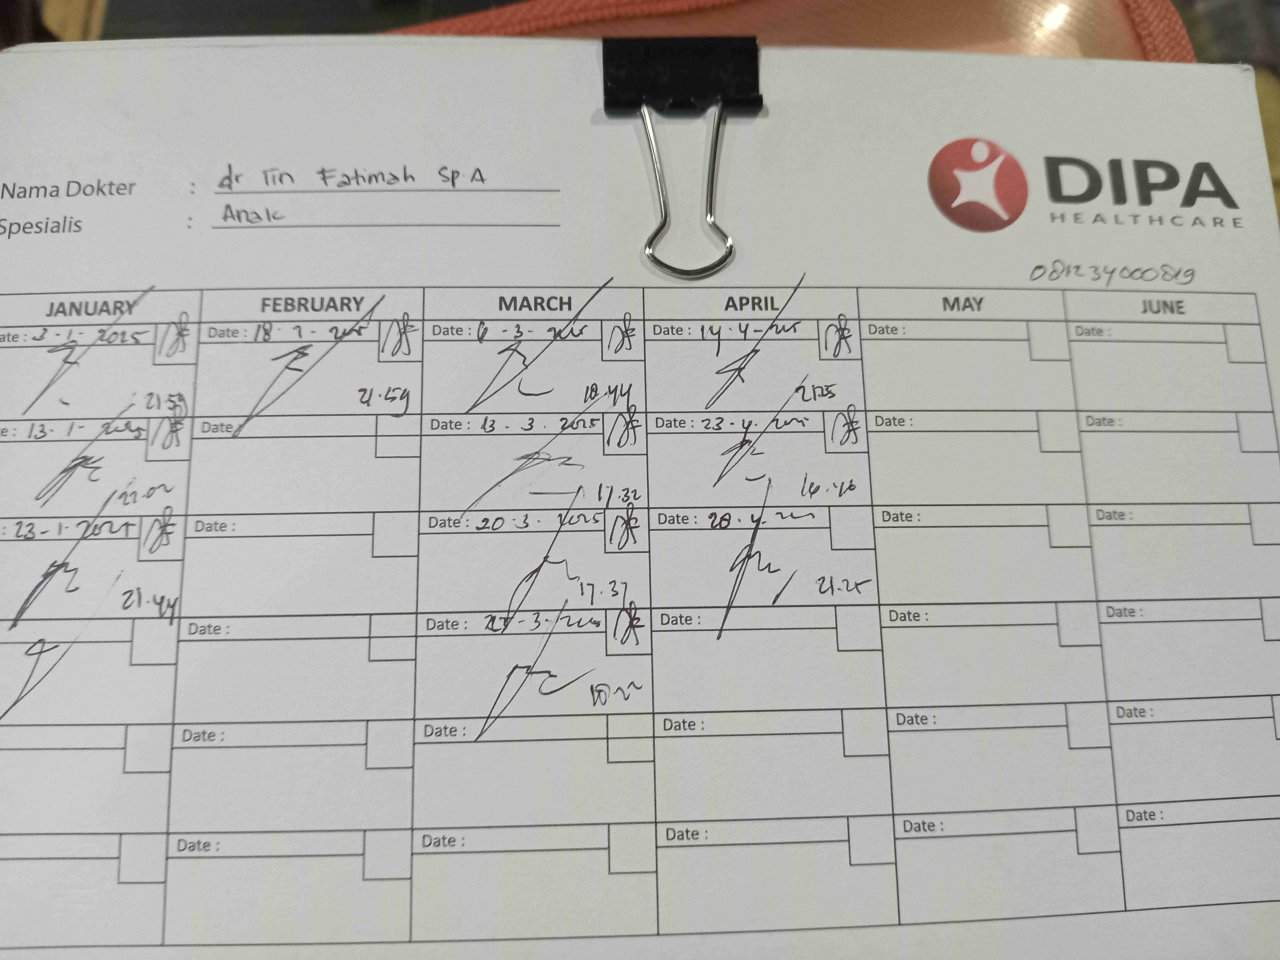 Nama Dokter : dr Iin Fatimah Sp.A
Spesialis : Anak
DIPA
HEALTHCARE
081234000819
JANUARY FEBRUARY MARCH APRIL MAY JUNE
ate: 3-1-2025 Date : 18-2-2025 Date : 6-3-2025 Date : 14-4-2025 Date : Date :
21.59 21.59 18.44 21.25
e: 13-1-2025 Date Date : 13-3-2025 Date : 23-4-2025 Date : Date :
22.02 17.32 16.46
: 23-1-2025 Date : Date : 20-3-2025 Date : 28-4-2025 Date : Date :
21.44 17.37 21.25
Date : Date : 27-3-2025 Date : Date : Date :
18.22
Date : Date : Date : Date : Date :
Date : Date : Date : Date : Date :